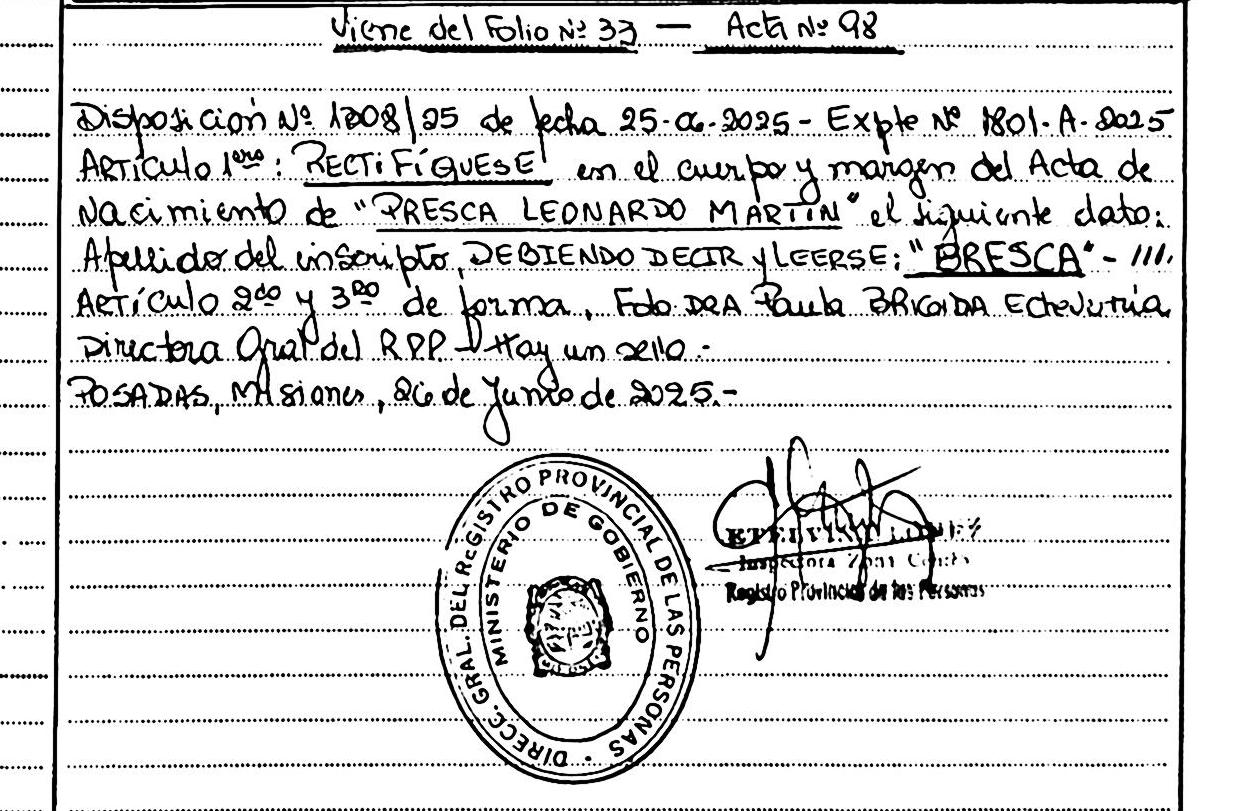 Viene del Folio Nº 33 — Acta Nº 98
Disposición Nº 1208/25 de fecha 25-06-2025 - Expte Nº 1801-A-2025
Artículo 1ero: RECTIFÍQUESE en el cuerpo y margen del Acta de
Nacimiento de "PRESCA LEONARDO MARTIN" el siguiente dato:
Apellido del inscripto, DEBIENDO DECIR y LEERSE: "BRESCA" - ///.
Artículo 2do y 3ro de forma, Fdo DRA Paula BRIGIDA Echeverría
Directora Gral del RPP - Hay un sello.-
POSADAS, Misiones, 26 de Junio de 2025.-
DIRECC. GRAL. DEL REGISTRO PROVINCIAL DE LAS PERSONAS
MINISTERIO DE GOBIERNO
Inspectora Zona
Registro Provincial de las Personas